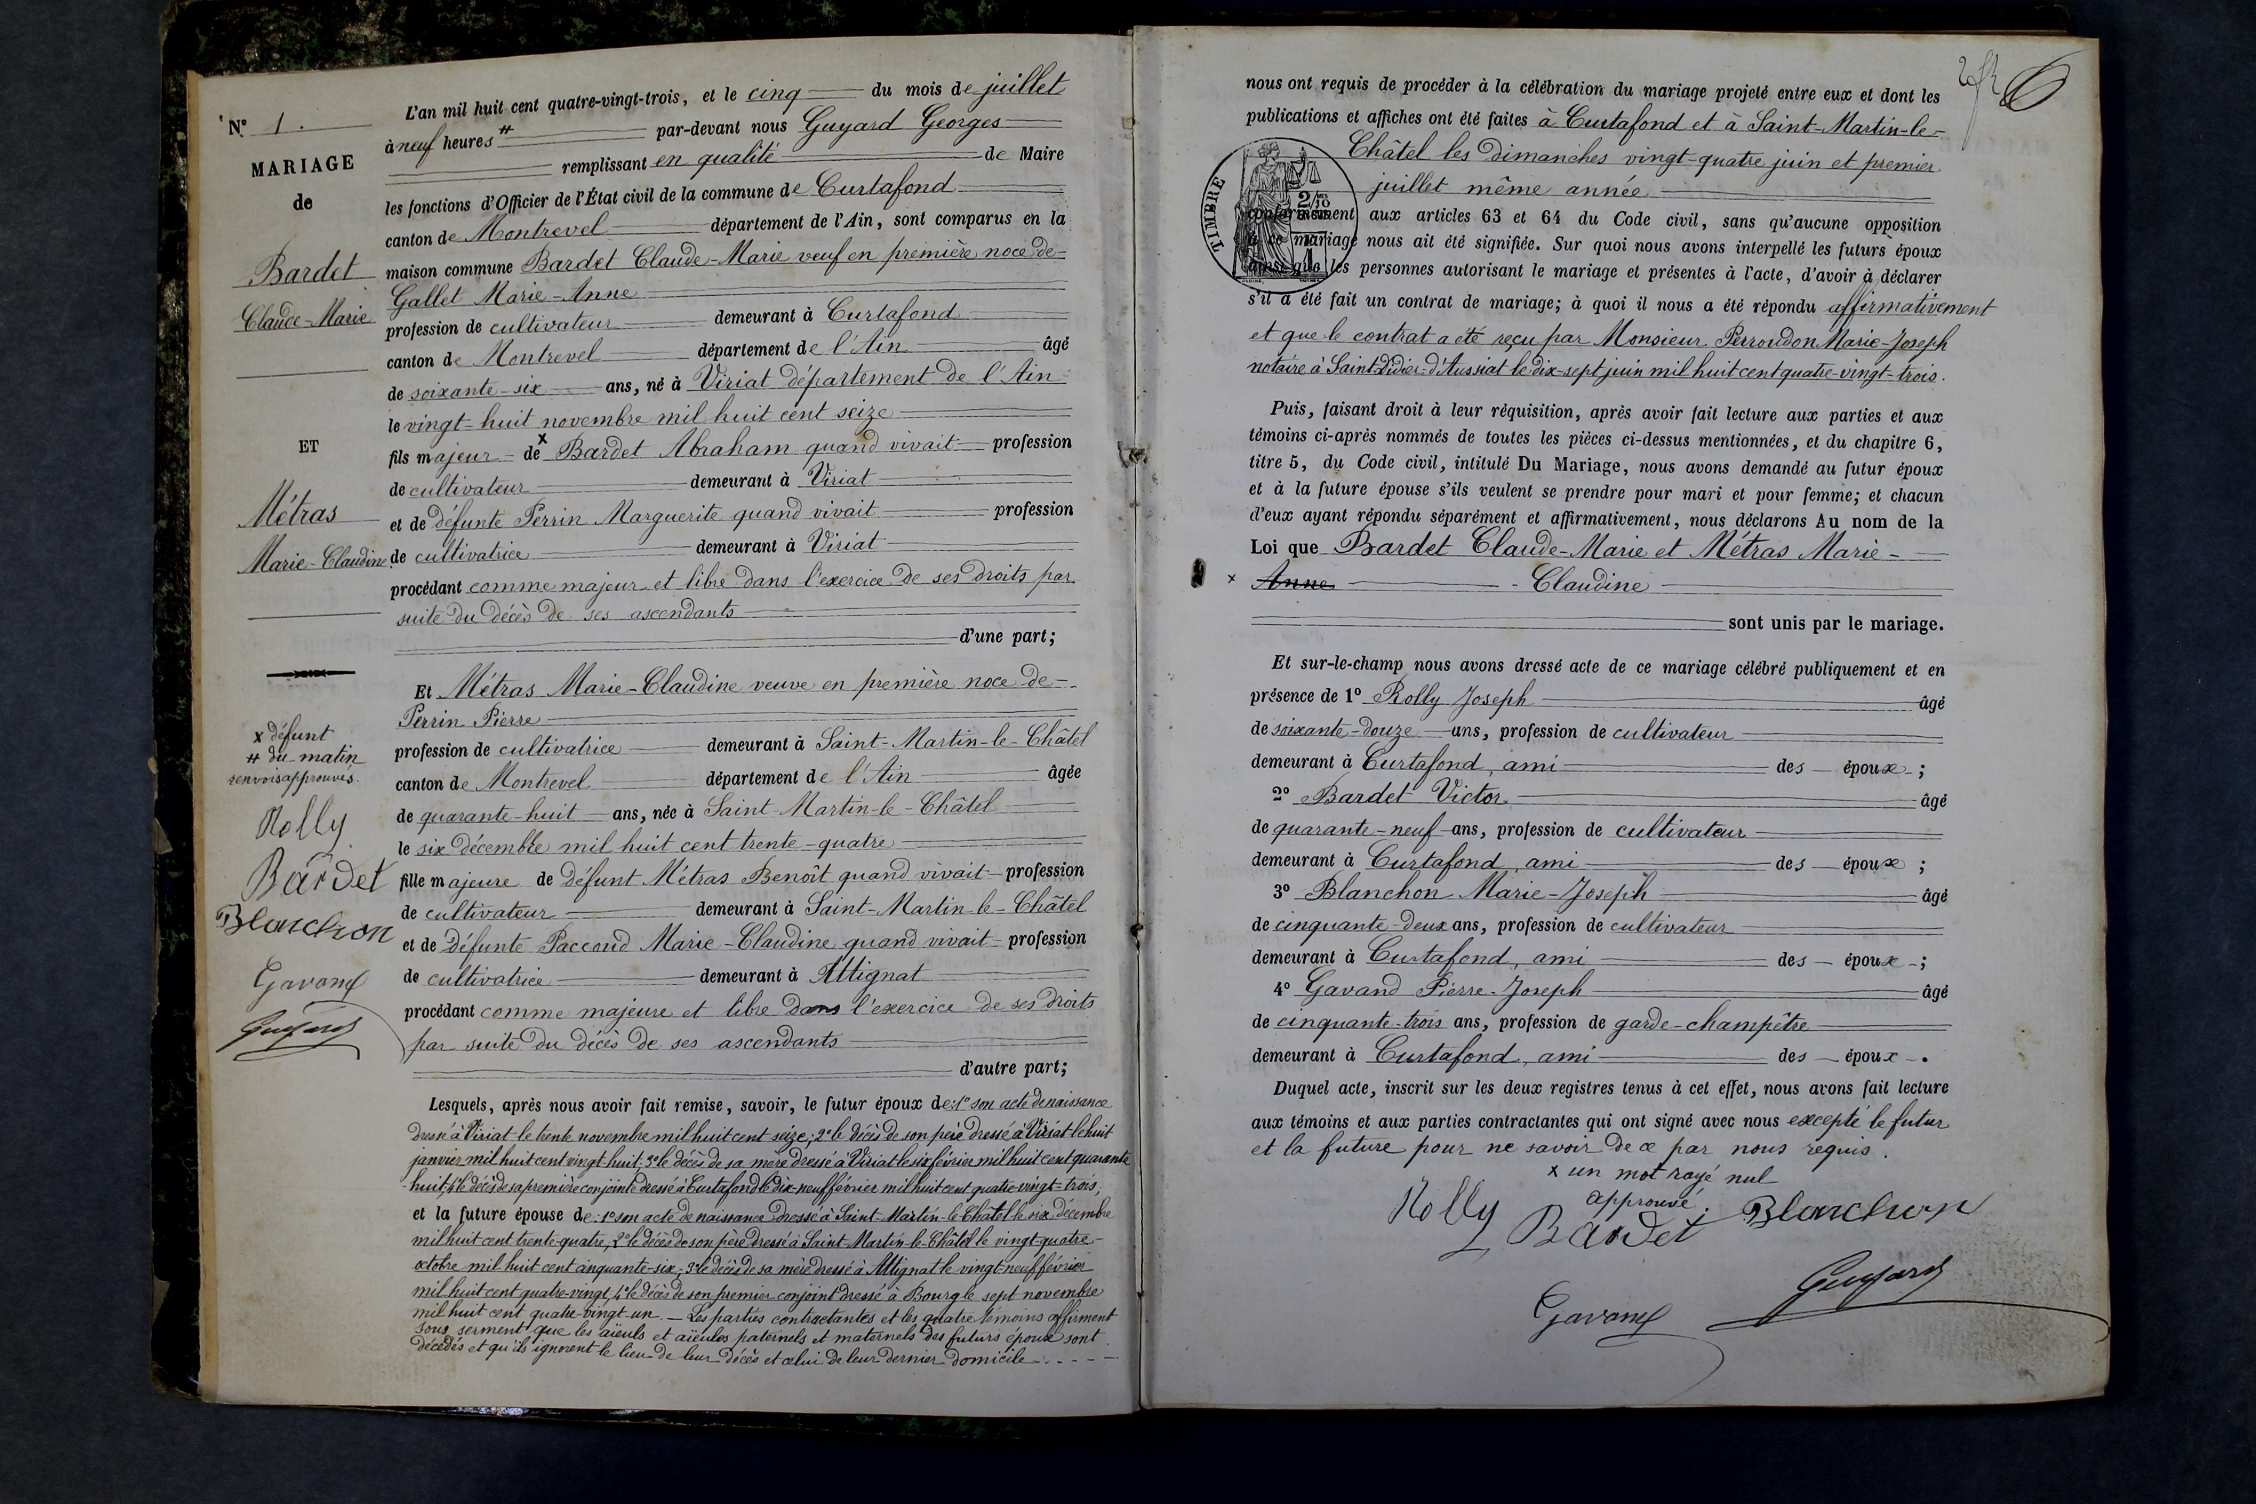 N° 1.
MARIAGE
de
Bardet
Claude-Marie
ET
Métras
Marie-Claudine
x défunt
# du matin
renvois approuvés.
Rolly
Bardet
Blanchon
Gavand
Guyard
L'an mil huit cent quatre-vingt-trois, et le cinq du mois de juillet
à neuf heures # par-devant nous Guyard Georges
remplissant en qualité de Maire
les fonctions d'Officier de l'État civil de la commune de Curtafond
canton de Montrevel département de l'Ain, sont comparus en la
maison commune Bardet Claude-Marie veuf en première noce de
Gallet Marie-Anne
profession de cultivateur demeurant à Curtafond
canton de Montrevel département de l'Ain âgé
de soixante-six ans, né à Viriat département de l'Ain
le vingt-huit novembre mil huit cent seize
fils majeur de x Bardet Abraham quand vivait profession
de cultivateur demeurant à Viriat
et de défunte Perrin Marguerite quand vivait profession
de cultivatrice demeurant à Viriat
procédant comme majeur et libre dans l'exercice de ses droits par
suite du décès de ses ascendants
d'une part;
Et Métras Marie-Claudine veuve en première noce de
Perrin Pierre
profession de cultivatrice demeurant à Saint-Martin-le-Châtel
canton de Montrevel département de l'Ain âgée
de quarante-huit ans, née à Saint-Martin-le-Châtel
le six décembre mil huit cent trente-quatre
fille majeure de défunt Métras Benoît quand vivait profession
de cultivateur demeurant à Saint-Martin-le-Châtel
et de défunte Paccoud Marie-Claudine quand vivait profession
de cultivatrice demeurant à Attignat
procédant comme majeure et libre dans l'exercice de ses droits
par suite du décès de ses ascendants
d'autre part;
Lesquels, après nous avoir fait remise, savoir, le futur époux de: 1° son acte de naissance
dressé à Viriat le trente novembre mil huit cent seize; 2° le décès de son père dressé à Viriat le huit
janvier mil huit cent vingt huit; 3° le décès de sa mère dressé à Viriat le six février mil huit cent quarante
-huit; 4° le décès de sa première conjointe dressé à Curtafond le dix-neuf février mil huit cent quatre-vingt-trois;
et la future épouse de: 1° son acte de naissance dressé à Saint-Martin-le-Châtel le six décembre
mil huit cent trente-quatre, 2° le décès de son père dressé à Saint-Martin-le-Châtel le vingt-quatre-
octobre mil huit cent cinquante-six; 3° le décès de sa mère dressé à Attignat le vingt-neuf février
mil huit cent quatre-vingt, 4° le décès de son premier conjoint dressé à Bourg le sept novembre
mil huit cent quatre-vingt-un. — Les parties contractantes et les quatre témoins affirment
sous serment que les aïeuls et aïeules paternels et maternels des futurs époux sont
décédés et qu'ils ignorent le lieu de leur décès et celui de leur dernier domicile
6
nous ont requis de procéder à la célébration du mariage projeté entre eux et dont les
publications et affiches ont été faites à Curtafond et à Saint-Martin-le-
Châtel les dimanches vingt-quatre juin et premier
juillet même année
TIMBRE
conformément aux articles 63 et 64 du Code civil, sans qu'aucune opposition
à ce mariage nous ait été signifiée. Sur quoi nous avons interpellé les futurs époux
ainsi que les personnes autorisant le mariage et présentes à l'acte, d'avoir à déclarer
s'il a été fait un contrat de mariage; à quoi il nous a été répondu affirmativement
et que le contrat a été reçu par Monsieur Perroudon Marie-Joseph
notaire à Saint-Didier-d'Aussiat le dix-sept juin mil huit cent quatre-vingt-trois.
Puis, faisant droit à leur réquisition, après avoir fait lecture aux parties et aux
témoins ci-après nommés de toutes les pièces ci-dessus mentionnées, et du chapitre 6,
titre 5, du Code civil, intitulé Du Mariage, nous avons demandé au futur époux
et à la future épouse s'ils veulent se prendre pour mari et pour femme; et chacun
d'eux ayant répondu séparément et affirmativement, nous déclarons Au nom de la
Loi que Bardet Claude-Marie et Métras Marie-
x Anne - Claudine
sont unis par le mariage.
Et sur-le-champ nous avons dressé acte de ce mariage célébré publiquement et en
présence de 1° Rolly Joseph âgé
de soixante-douze ans, profession de cultivateur
demeurant à Curtafond, ami des époux;
2° Bardet Victor âgé
de quarante-neuf ans, profession de cultivateur
demeurant à Curtafond, ami des époux;
3° Blanchon Marie-Joseph âgé
de cinquante-deux ans, profession de cultivateur
demeurant à Curtafond, ami des époux;
4° Gavand Pierre-Joseph âgé
de cinquante-trois ans, profession de garde-champêtre
demeurant à Curtafond, ami des époux.
Duquel acte, inscrit sur les deux registres tenus à cet effet, nous avons fait lecture
aux témoins et aux parties contractantes qui ont signé avec nous excepté le futur
et la future pour ne savoir de ce par nous requis.
x un mot rayé nul
approuvé.
Rolly Bardet Blanchon
Guyard
Gavand